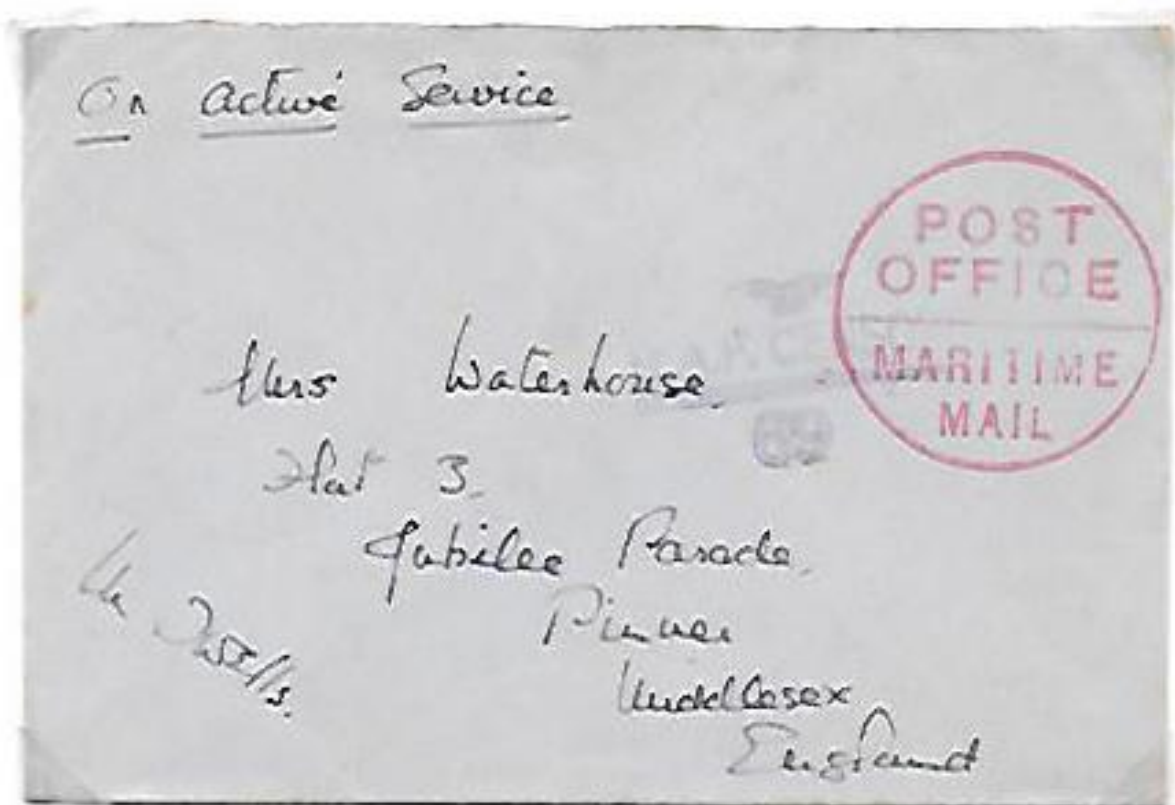 On Active Service
POST
OFFICE
MARITIME
MAIL
Mrs Waterhouse.
Flat 3.
Jubilee Parade.
Pinner
Middlesex
England